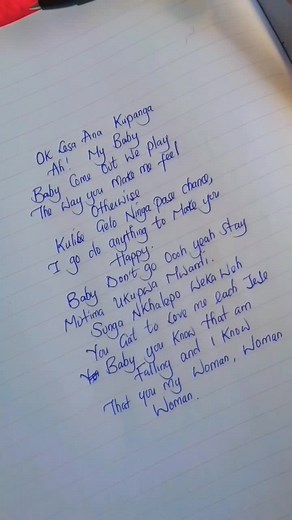 OK Lesa Ana Kupanga
Ah! My Baby
Baby Come Out We Play
The Way you Make me feel
Otherwise
Kulibe Gelo Ninga pase chance,
I go do anything to Make you
Happy.
Baby Don't go Oooh yeah stay
Mutima ukupwa Mwanti.
Sunga Nkhalepo Weka Weh
You Gat to Love me each Jese
Baby you Know that am
Falling and I Know
That you my Woman, Woman
Woman.